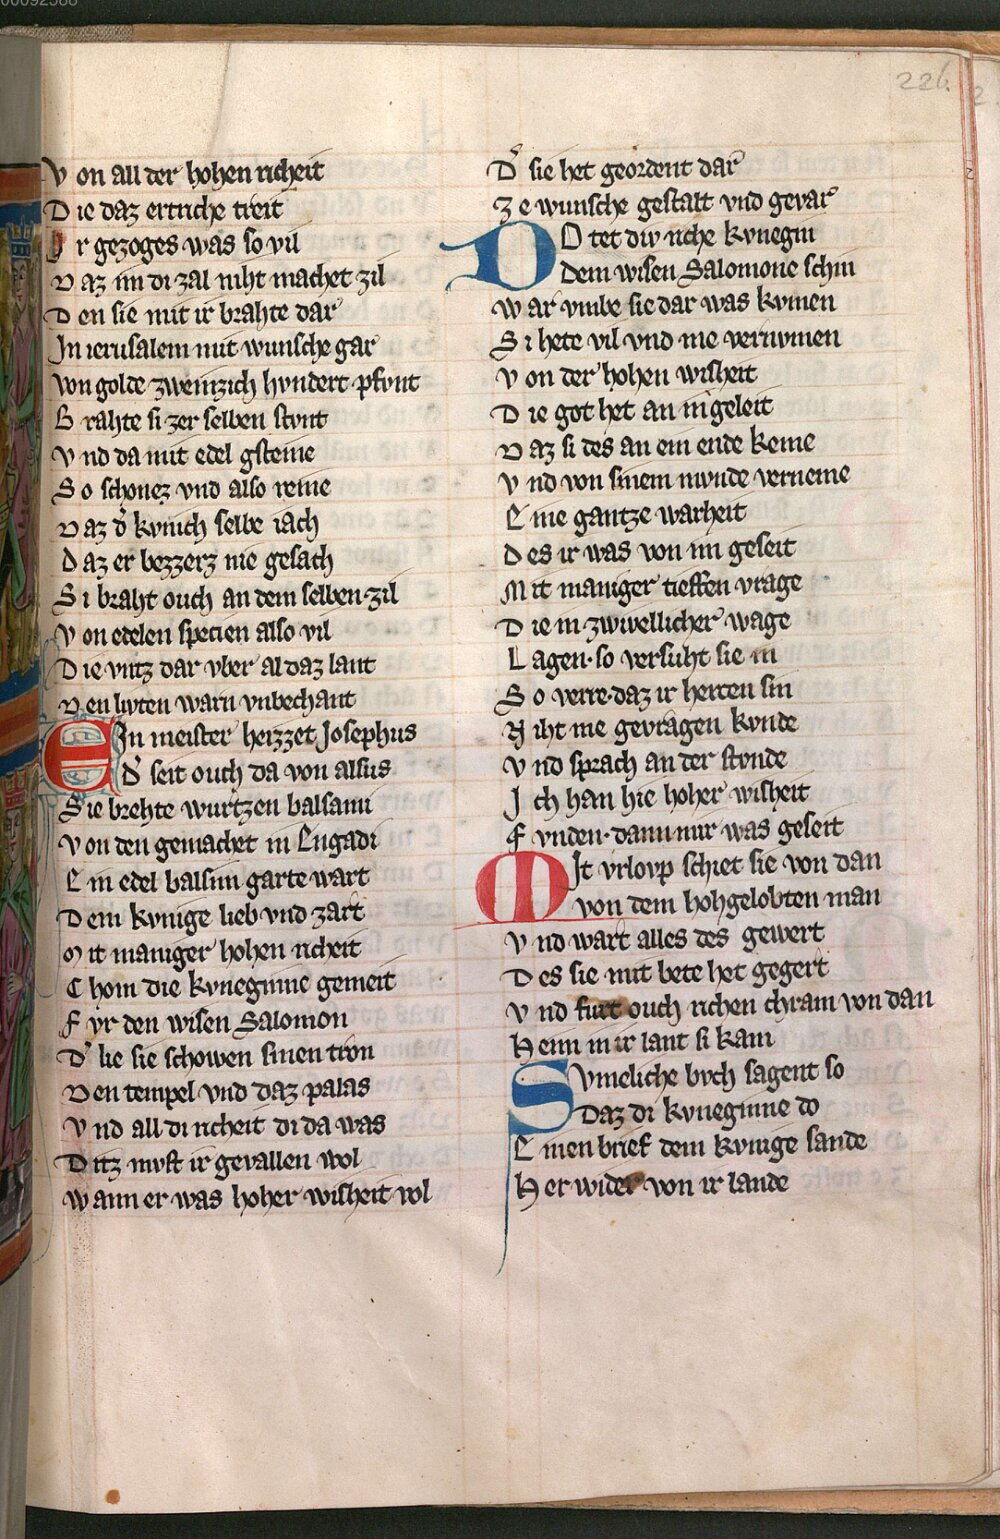 00092588
226
Von all der hohen richeit
Die daz ertriche treit
Ir gezoges was so vil
Daz im di zal niht machet zil
Den sie mit ir brahte dar
In ierusalem mit wunsche gar
Von golde zweinzich hvndert pfvnt
Brahte si zer selben stvnt
Vnd da mit edel gsteine
So schonez vnd also reine
Daz d̾ kvnich selbe iach
Daz er bezzerz nie gesach
Si braht ouch an dem selben zil
Von edelen specien also vil
Die vntz dar vber al daz lant
Den livten warn vnbechant
Ein meister heizzet Josephus
D̾ seit ouch da von alsus
Sie brehte wurtzen balsami
Von den gemachet in Engadi
Ein edel balsim garte wart
Dem kvnige lieb vnd zart
Mit maniger hohen richeit
Chom die kvneginne gemeit
Fvr den wisen Salomon
D̾ lie sie schowen sinen tron
Den tempel vnd daz palas
Vnd all di richeit di da was
Ditz mvst ir gevallen wol
Wann er was hoher wisheit vol
D̾ sie het geordent dar
Ze wunsche gestalt vnd gevar
DO tet div riche kvnegin
Dem wisen Salomone schin
War vmbe sie dar was kvmen
Si hete vil vnd me vernvmen
Von der hohen wisheit
Die got het an in geleit
Daz si des an ein ende keme
Vnd von sinem mvnde verneme
Eine gantze warheit
Des ir was von im geseit
Mit maniger tieffen vrage
Die in zwivellicher wage
Lagen·so versuht sie in
So verre·daz ir hercen sin
Niht me gevragen kvnde
Vnd sprach an der stvnde
Ich han hie hoher wisheit
Fvnden·dann mir was geseit
MIt vrlovp schiet sie von dan
von dem hohgelobten man
Vnd wart alles des gewert
Des sie mit bete het gegert
Vnd furt ouch richen chram von dan
Heim in ir lant si kam
Svmeliche bvch sagent so
Daz di kvneginne do
Einen brief dem kvnige sande
Her wider von ir lande